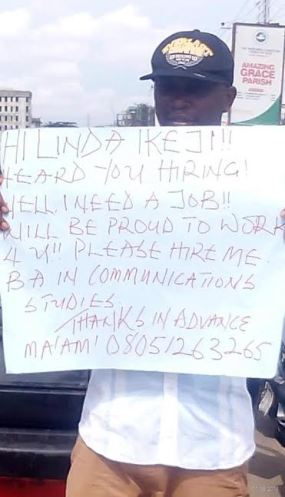 AMAZING
GRACE
PARISH
HI LINDA IKEJI!!!
HEARD YOU HIRING!
WELL, I NEED A JOB!!
WILL BE PROUD TO WORK
4 U!! PLEASE HIRE ME.
BA IN COMMUNICATIONS
STUDIES.
THANKS IN ADVANCE
MA'AM' 08051263265